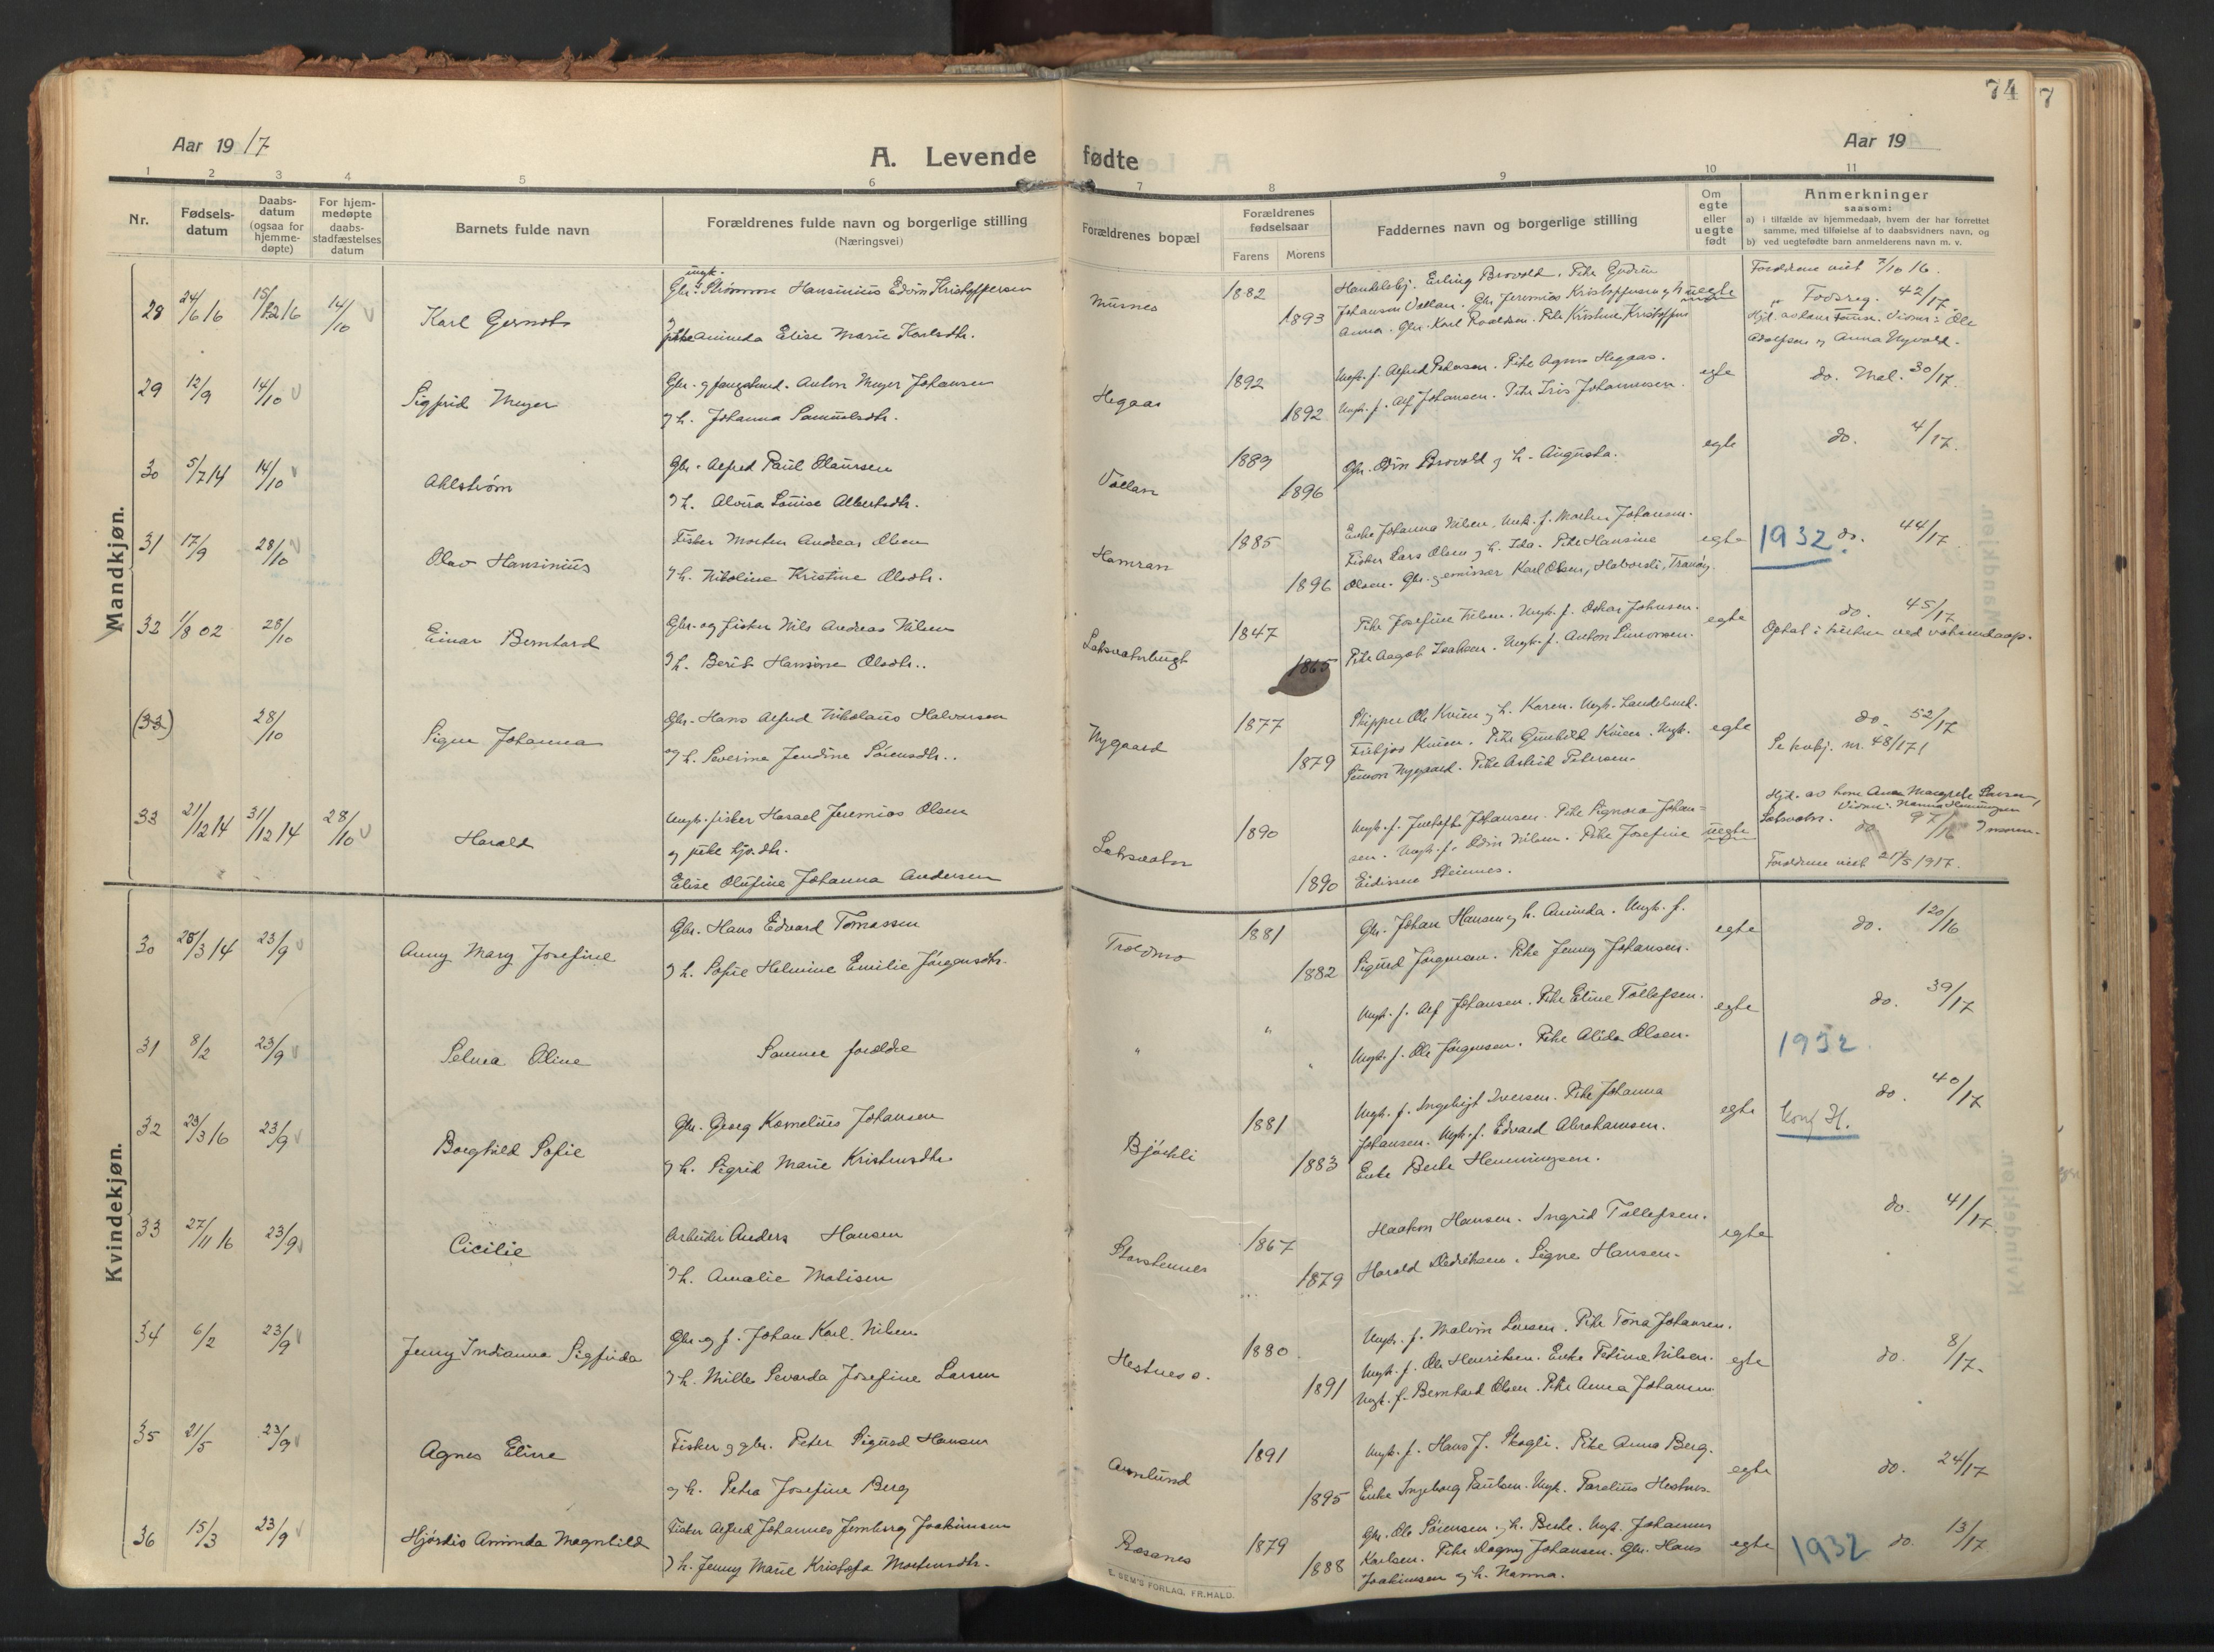 74
7
Aar 1917
A. Levende fødte
Aar 19
1 2 3 4 5 6 7 8 9 10 11
Nr.
Fødsels-
datum
Daabs-
datum
(ogsaa for
hjemme-
døpte)
For hjem-
medøpte
daabs-
stadfæstelses
datum
Barnets fulde navn
Forældrenes fulde navn og borgerlige stilling
(Næringsvei)
Forældrenes bopæl
Forældrenes
fødselsaar
Farens Morens
Faddernes navn og borgerlige stilling
Om
egte
eller
uegte
født
Anmerkninger
saasom:
a) i tilfælde av hjemmedaab, hvem der har forrettet
samme, med tilføielse af to daabsvidners navn, og
b) ved uegtefødte barn anmelderens navn m. v.
Mandkjøn.
28 24/6 16 14/10 Karl
Hansinius Edvin Kristoffersen
Elise Marie Karlsdtr.
Musnes 1882 1893
Handelsbj. Erling Brovold. Pike Gudrun
uegte
Forældrene viet 7/10 16.
Fødsreg. 42/17.
29 12/9 14/10 Sigfrid Meyer
Anton Meyer Johansen
og h. Johanna Samuelsdtr.
Hegaas 1892 1892
Ungk. f. Alfred Pedersen. Pike Agnes Hegaas.
Ungk. f. Alf Johansen. Pike Iris Johannesen.
egte
do. 30/17.
30 5/7 14 14/10 Ahlstrøm
Gbr. Alfred Paul Olaussen
og h. Alvira Louise Albertsdtr.
Vollan 1889 1896
Gbr. Odin Brovold og h. Augusta.
egte
do. 4/17.
31 17/9 28/10 Olav Hansinius
Fisker Morten Andreas Olsen
og h. Nikoline Kristine Olsdtr.
Hamran 1885 1896
Enke Johanna Nilsen. Ungk. f. Morten Johansen.
Fisker Lars Olsen og h. Ida. Pike Hansine
Olsen. Gbr. og emissær Karl Olsen, Tranøy.
egte
1932 do. 44/17.
32 1/8 02 28/10 Einar Bernhard
Gbr. og fisker Nils Andreas Nilsen
og h. Berit Hansine Olsdtr..
Laksvatnbugt 1847 1865
Pike Josefine Nilsen. Ungk. f. Oskar Johnsen.
Pike Aagot Isaksen. Ungk. f. Anton Simonsen.
egte
do. 45/17
Optat i kirken ved voksendaap.
(33) 28/10 Signe Johanna
Gbr. Hans Alfred Nikolaus Halvorsen
og h. Severine Jendine Sørensdtr..
Nygaard 1877 1879
Skipper Ole Kvien og h. Karen.
Kvien. Pike Gunhild Kvien. Ungk.
Simon Nygaard. Pike Astrid Petersen.
egte
do. 52/17
Se kvkj. nr. 48/17!
33 21/12 14 31/12 14 28/10 Harald
Ungk. fisker Jeremias Olsen
Elise Olufine Johanna Andersen
Laksvatn 1890 1890
Johansen. Pike Signora Johan=
sen. Ungk. f. Odin Nilsen. Pike Josefine
Steinnes.
uegte
do 97/16
Forældrene viet 1917.
Kvindekjøn.
30 25/3 14 23/9 Anny Mary Josefine
Gbr. Hans Edvard Tomassen
og h. Sofie Helmine Emilie Jørgensdtr.
Troldmo 1881 1882
Gbr. Johan Hansen og h. Aminda. Ungk. f.
Sigurd Jørgensen. Pike Jenny Johansen.
egte
do. 120/16
31 8/2 23/9 Selma Oline
Samme forældre
" " "
Ungk. f. Alf Johansen. Pike Eline Tollefsen.
Ungk. f. Ole Jørgensen. Pike Alida Olsen.
egte
do. 39/17
1932
32 23/3 16 23/9 Borghild Sofie
Gbr. Georg Kornelius Johansen
og h. Sigrid Marie Kristensdtr.
Bjørkli 1881 1883
Ungk. f. Ingebrigt Iversen. Pike Johanna
Johansen. Ungk. f. Edvard Abrahamsen.
Enke Berte Henningsen.
egte
Konf. H. do. 40/17
33 27/11 16 23/9 Cicilie
Arbeider Anders Hansen
og h. Amalie Matisen
Storstennes 1867 1879
Haakon Hansen. Ingrid Tollefsen.
Harald Dedriksen. Signe Hansen.
egte
do. 41/17.
34 6/2 23/9 Jenny Indianna Sigfrida
Gbr. og f. Johan Karl. Nilsen
og h. Mille Sevarda Josefine Larsen
Hestnes ø. 1880 1891
Ungk. f. Malvin Larsen. Pike Tona Johansen.
Ungk. f. Ole Henriksen. Enke Petrine Nilsen.
Ungk. f. Bernhard Olsen. Pike Anna Johansen
egte
do. 8/17.
35 21/5 23/9 Agnes Eline
Fisker og gbr. Peter Sigurd Hansen
og h. Petra Josefine Berg
Aanlund 1891 1895
Ungk. f. Hans J. Skogli. Pike Anna Berg.
Enke Ingeborg Paulsen. Ungk. Parelius Hestnes
egte
do. 24/17
36 15/3 23/9 Hjørdis Aminda Magnhild
Fisker Alfred Johannes Jernberg Joakimsen
og h. Jenny Marie Kristofa Mortensdtr.
Rosanes 1879 1888
Gbr. Ole Sørensen og h. Berte. Ungk. Johannes
Karlsen. Pike Dagny Johansen. Gbr. Hans
Joakimsen og h. Nanna.
egte
1932 do. 13/17
E. SEM'S FORLAG, FR.HALD.